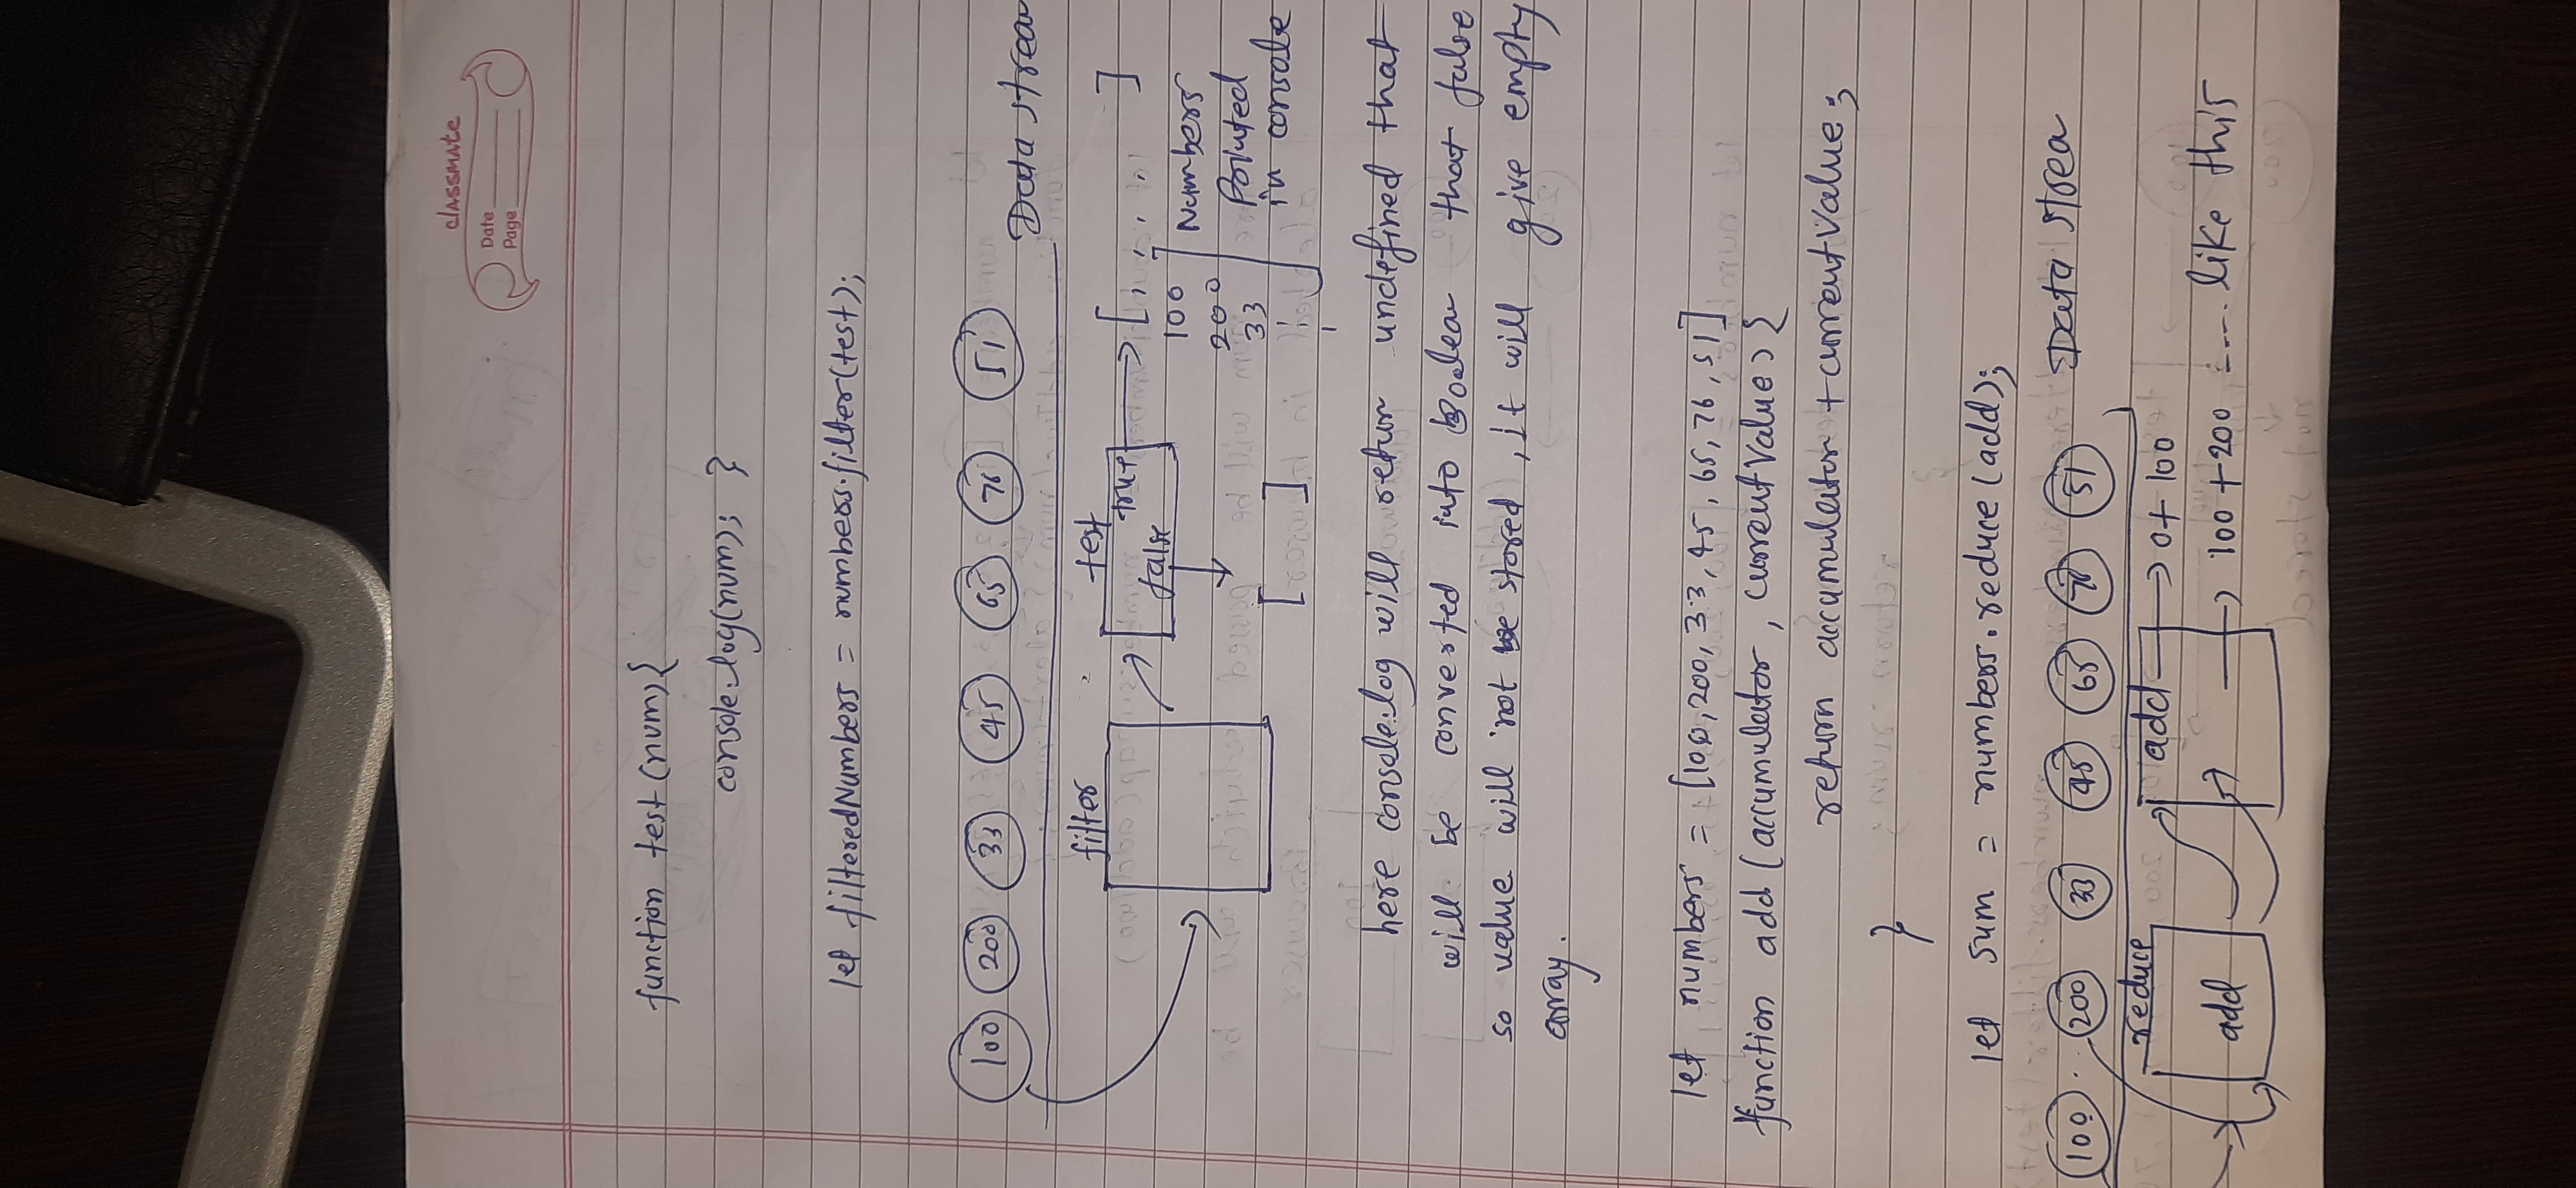 classmate
Date
Page
function test (num) {
console.log(num); }
let filteredNumbers = numbers.filter(test);
100 200 33 45 65 76 51
Data stream
filter test
true [ , , , , ]
false
100
200
33
Numbers
Printed
in console
[ ]
here console.log will return undefined that
will be converted into Boolean that false
so value will not be stored, it will give empty
array.
let numbers = [100, 200, 33, 45, 65, 76, 51]
function add (accumulator, currentValue) {
return accumulator + currentValue;
}
let sum = numbers.reduce (add);
100 200 33 45 65 76 51 Data strea
reduce add → 0 + 100
add → 100 + 200 .... like this